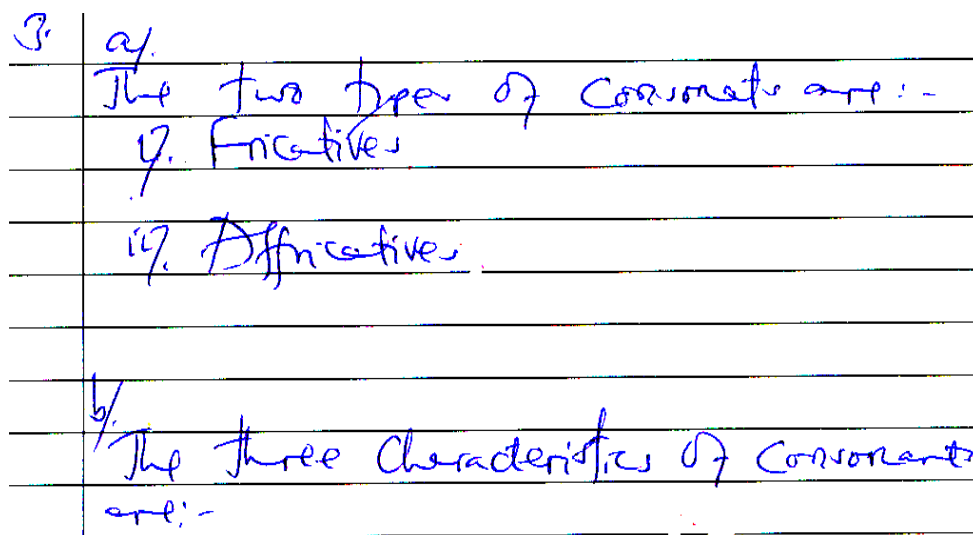 3. a/.
The two types of Consonats are:-
i/. Fricatives
ii/. Affricatives
b/.
The three Characteristics of Consonants
are:-